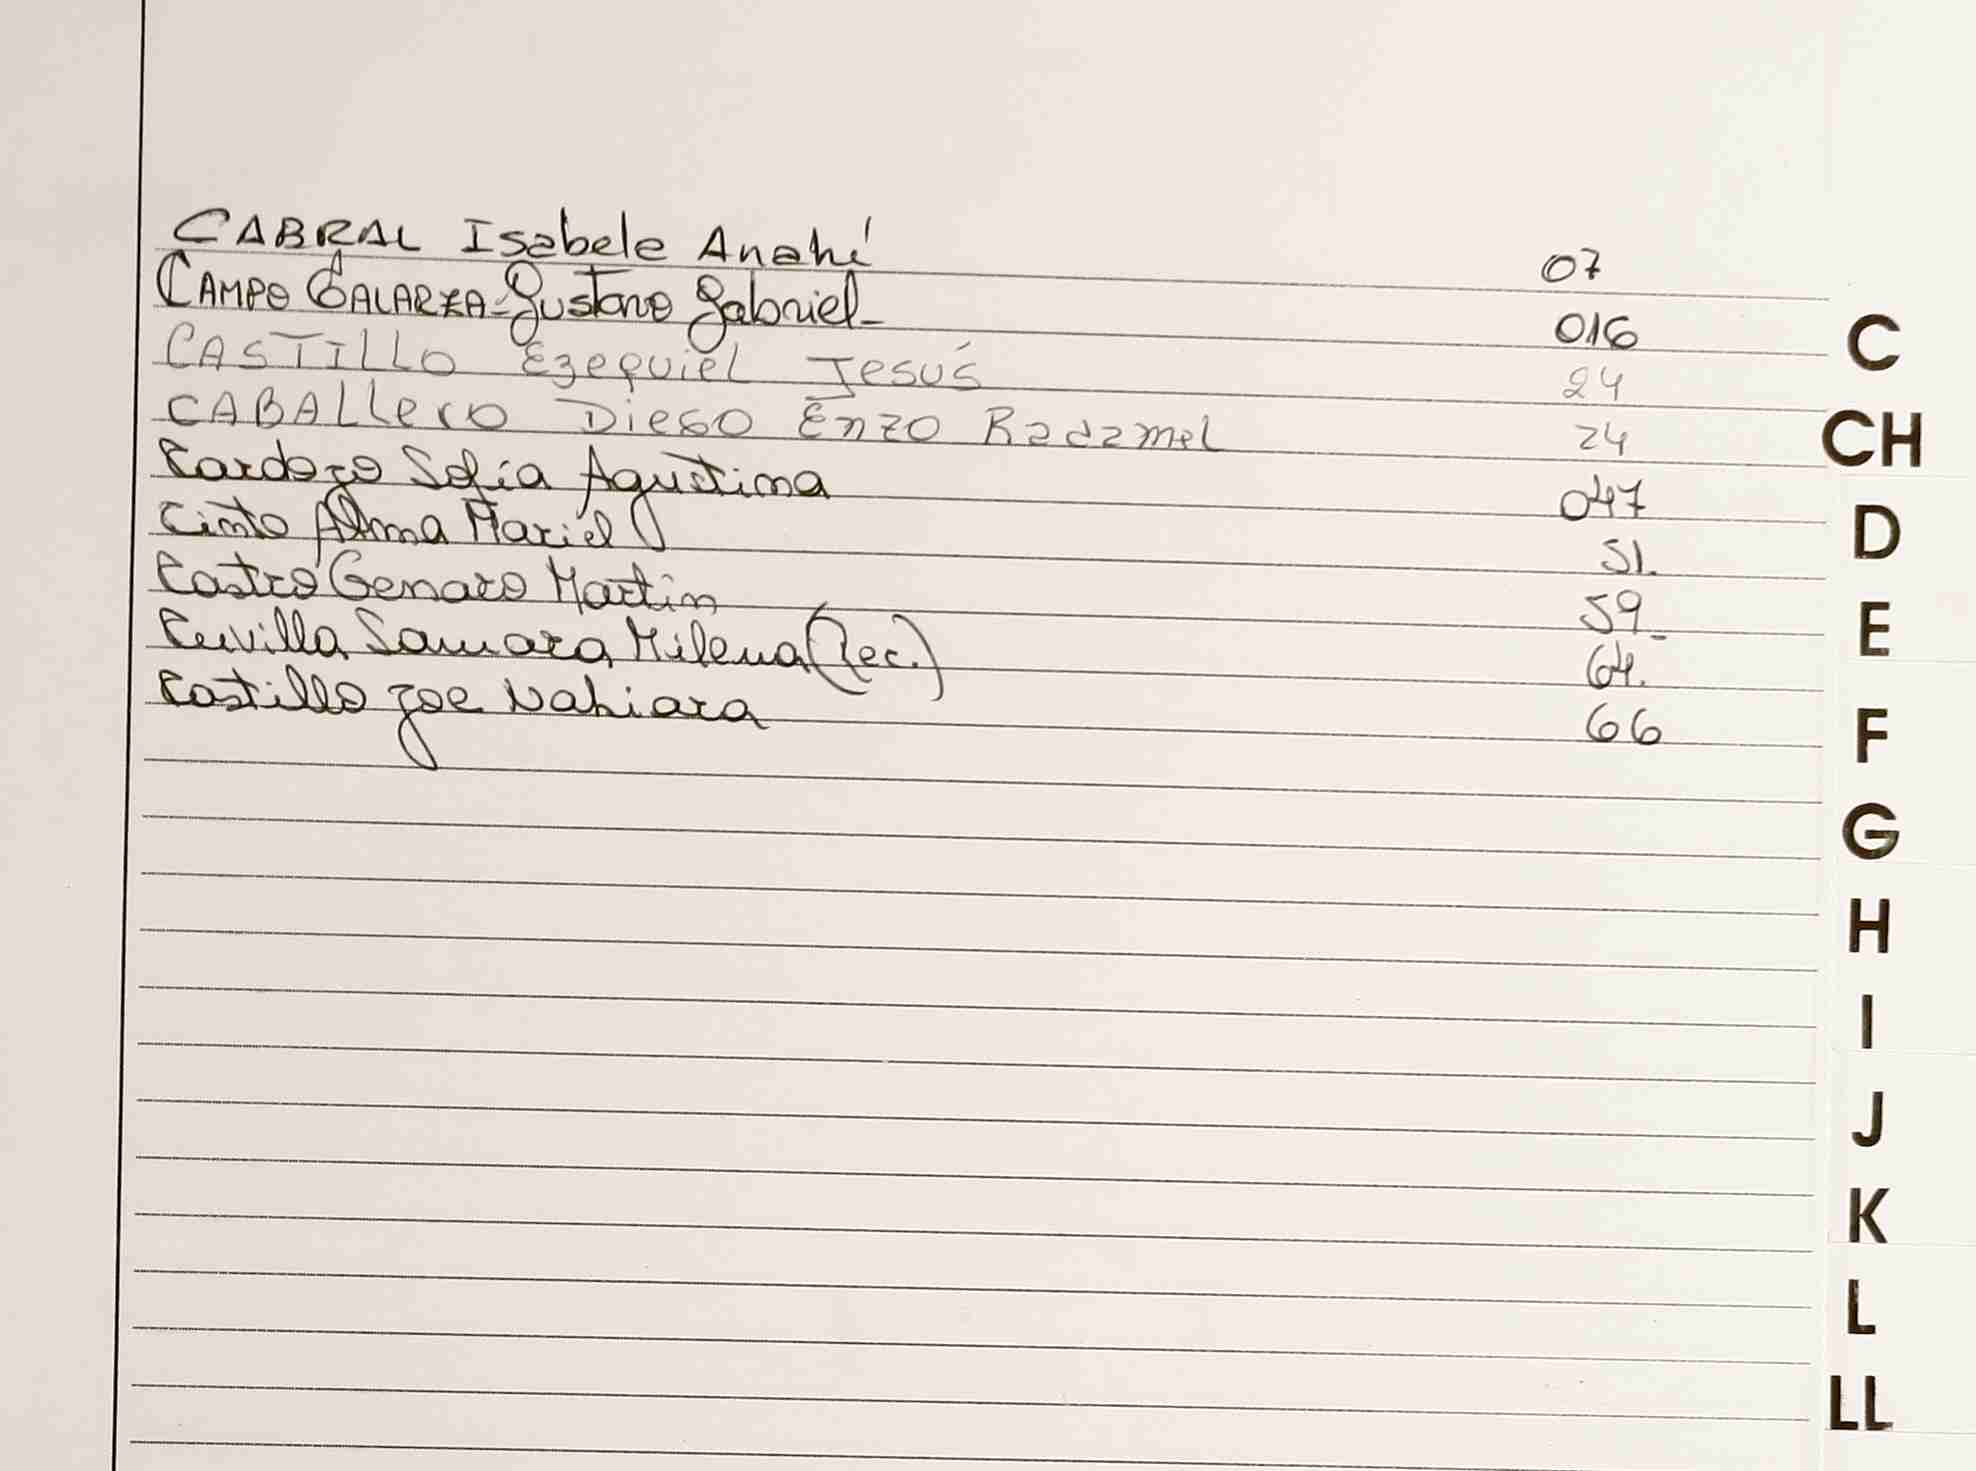 CABRAL Isabele Anahí 07
CAMPO GALARZA - Gustavo Gabriel - 016
CASTILLO Ezequiel Jesús 24
CABALLero Diego Enzo Radamel 24
Cardozo Sofía Agustina 047
Cinto Alma Mariel 51.
Castro Genaro Martin 59_
Cuvilla Samara Milena (Rec.) 64.
Castillo Zoe Nahiara 66
C
CH
D
E
F
G
H
I
J
K
L
LL